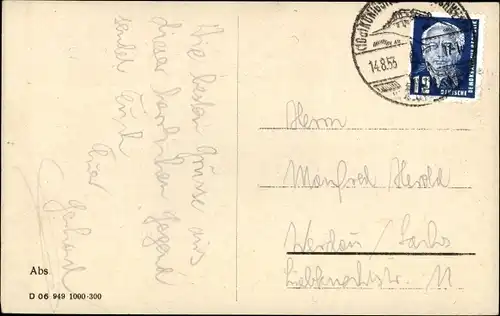 (10a) KÖNIGSTEIN
14.8.53
12
DEUTSCHE
Die besten Grüsse aus
dieser herrlichen Gegend
sendet Euch
Euer
Gerhard
Herrn
Manfred Herold
Werdau / Sachs
Liebknechtstr. 11
Abs
D 06 949 1000-300